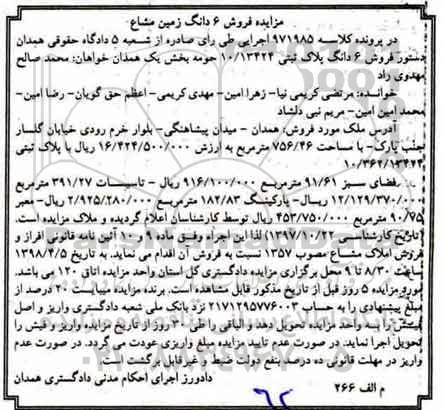 مزایده فروش ۶ دانگ زمین مشاع
در پرونده کلاسه ۹۷۱۹۸۵ اجرایی طی رای صادره از شعبه ۵ دادگاه حقوقی همدان
دستور فروش ۶ دانگ پلاک ثبتی ۱۰/۱۳۴۲۴ حومه بخش یک همدان خواهان: محمد صالح
مهدوی راد
خوانده: مرتضی کریمی نیا- زهرا امین- مهدی کریمی- اعظم حق گویان- رضا امین-
محمد امین امین- مریم نبی دلشاد
آدرس ملک مورد فروش: همدان - میدان پیشاهنگی- بلوار خرم رودی خیابان گلسار
جنب پارک- با مساحت ۷۵۶/۴۶ مترمربع به ارزش ۱۶/۴۲۴/۵۰۰/۰۰۰ ریال با پلاک ثبتی
۱۰/۳۶۲/۱۳۴۲۴
فضای سبز ۹۱/۶۱ مترمربع ۹۱۶/۱۰۰/۰۰۰ ریال - تاسیسات ۳۹۱/۲۷ مترمربع
۱۲/۱۲۹/۳۷۰/۰۰۰ ریال- پارکینگ ۱۸۲/۸۳ مترمربع ۲/۹۲۵/۲۸۰/۰۰۰ ریال- معبر
۹۰/۷۵ مترمربع ۴۵۳/۷۵۰/۰۰۰ ریال توسط کارشناسان اعلام گردیده و ملاک مزایده است.
(تاریخ کارشناسی ۱۳۹۷/۱۰/۲۲) لذا این اجراء وفق ماده ۹ و ۱۰ آئین نامه قانونی افراز و
فروش املاک مشاع مصوب ۱۳۵۷ نسبت به فروش آن اقدام می نماید. به تاریخ ۱۳۹۸/۴/۵
ساعت ۸/۳۰ تا ۹ محل برگزاری مزایده دادگستری کل استان واحد مزایده اتاق ۱۲۰ می باشد.
مورد مزایده ۵ روز قبل از تاریخ مذکور قابل مشاهده است. برنده مزایده میبایست ۲۰ درصد از
مبلغ پیشنهادی را به حساب ۲۱۷۱۲۹۵۷۷۶۰۰۳ نزد بانک ملی شعبه دادگستری واریز و اصل
فیش را به واحد مزایده تحویل دهد و الباقی را طی ۳۰ روز از تاریخ مزایده واریز و فیش را
تحویل اجرا نماید. در صورت عدم تایید مزایده مبلغ واریزی عودت می گردد. در صورت عدم
واریز در مهلت قانونی ده درصد بنفع دولت ضبط و غیرقابل برگشت است.
دادورز اجرای احکام مدنی دادگستری همدان
م الف ۲۶۶